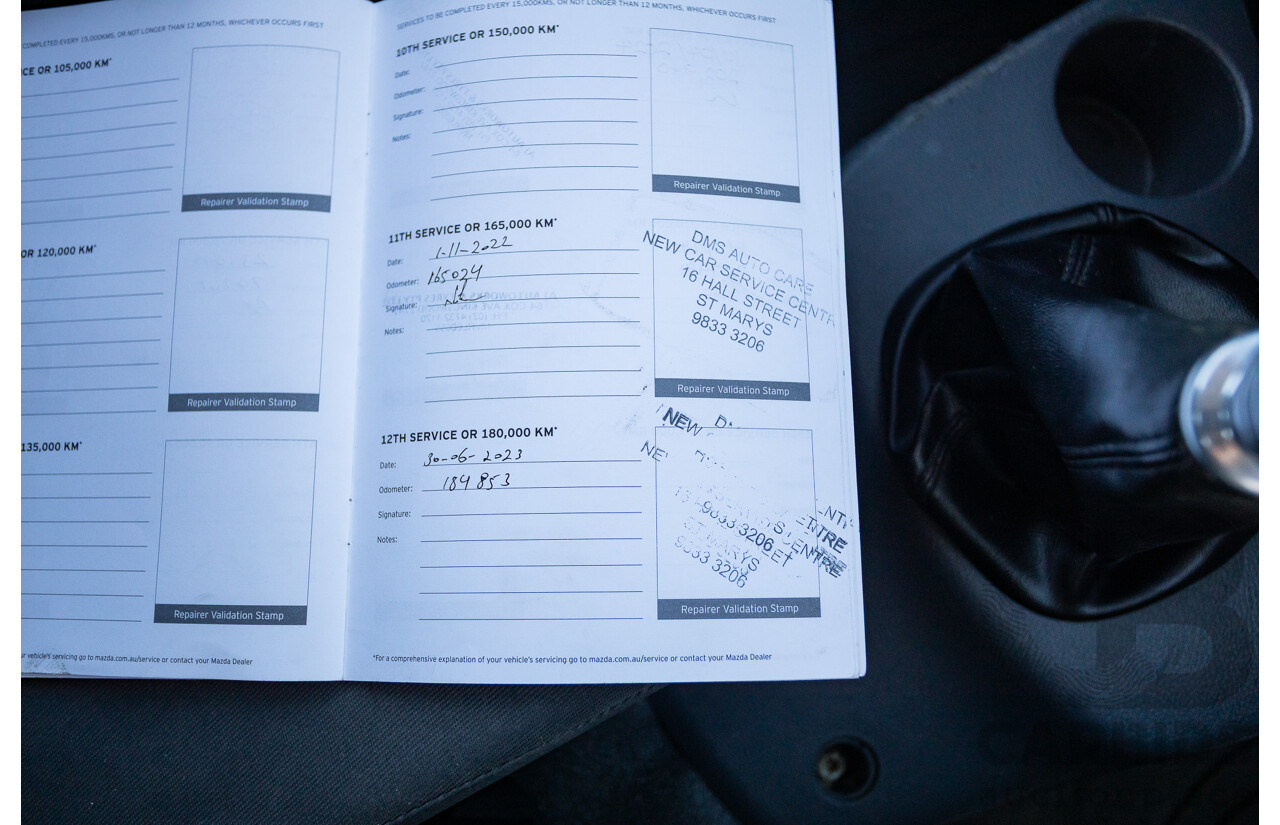 COMPLETED EVERY 15,000KMS, OR NOT LONGER THAN 12 MONTHS, WHICHEVER OCCURS FIRST
CE OR 105,000 KM*
Repairer Validation Stamp
OR 120,000 KM*
Repairer Validation Stamp
135,000 KM*
Repairer Validation Stamp
vehicle's servicing go to mazda.com.au/service or contact your Mazda Dealer
SERVICES TO BE COMPLETED EVERY 15,000KMS, OR NOT LONGER THAN 12 MONTHS, WHICHEVER OCCURS FIRST
10TH SERVICE OR 150,000 KM*
Date:
Odometer:
Signature:
Notes:
Repairer Validation Stamp
11TH SERVICE OR 165,000 KM*
Date: 1-11-2022
Odometer: 165024
Signature:
Notes:
DMS AUTO CARE
NEW CAR SERVICE CENTR
16 HALL STREET
ST MARYS
9833 3206
Repairer Validation Stamp
12TH SERVICE OR 180,000 KM*
Date: 30-06-2023
Odometer: 184853
Signature:
Notes:
NEW
9833 3206
ENTRE
ST MARYS
9833 3206
Repairer Validation Stamp
*For a comprehensive explanation of your vehicle's servicing go to mazda.com.au/service or contact your Mazda Dealer